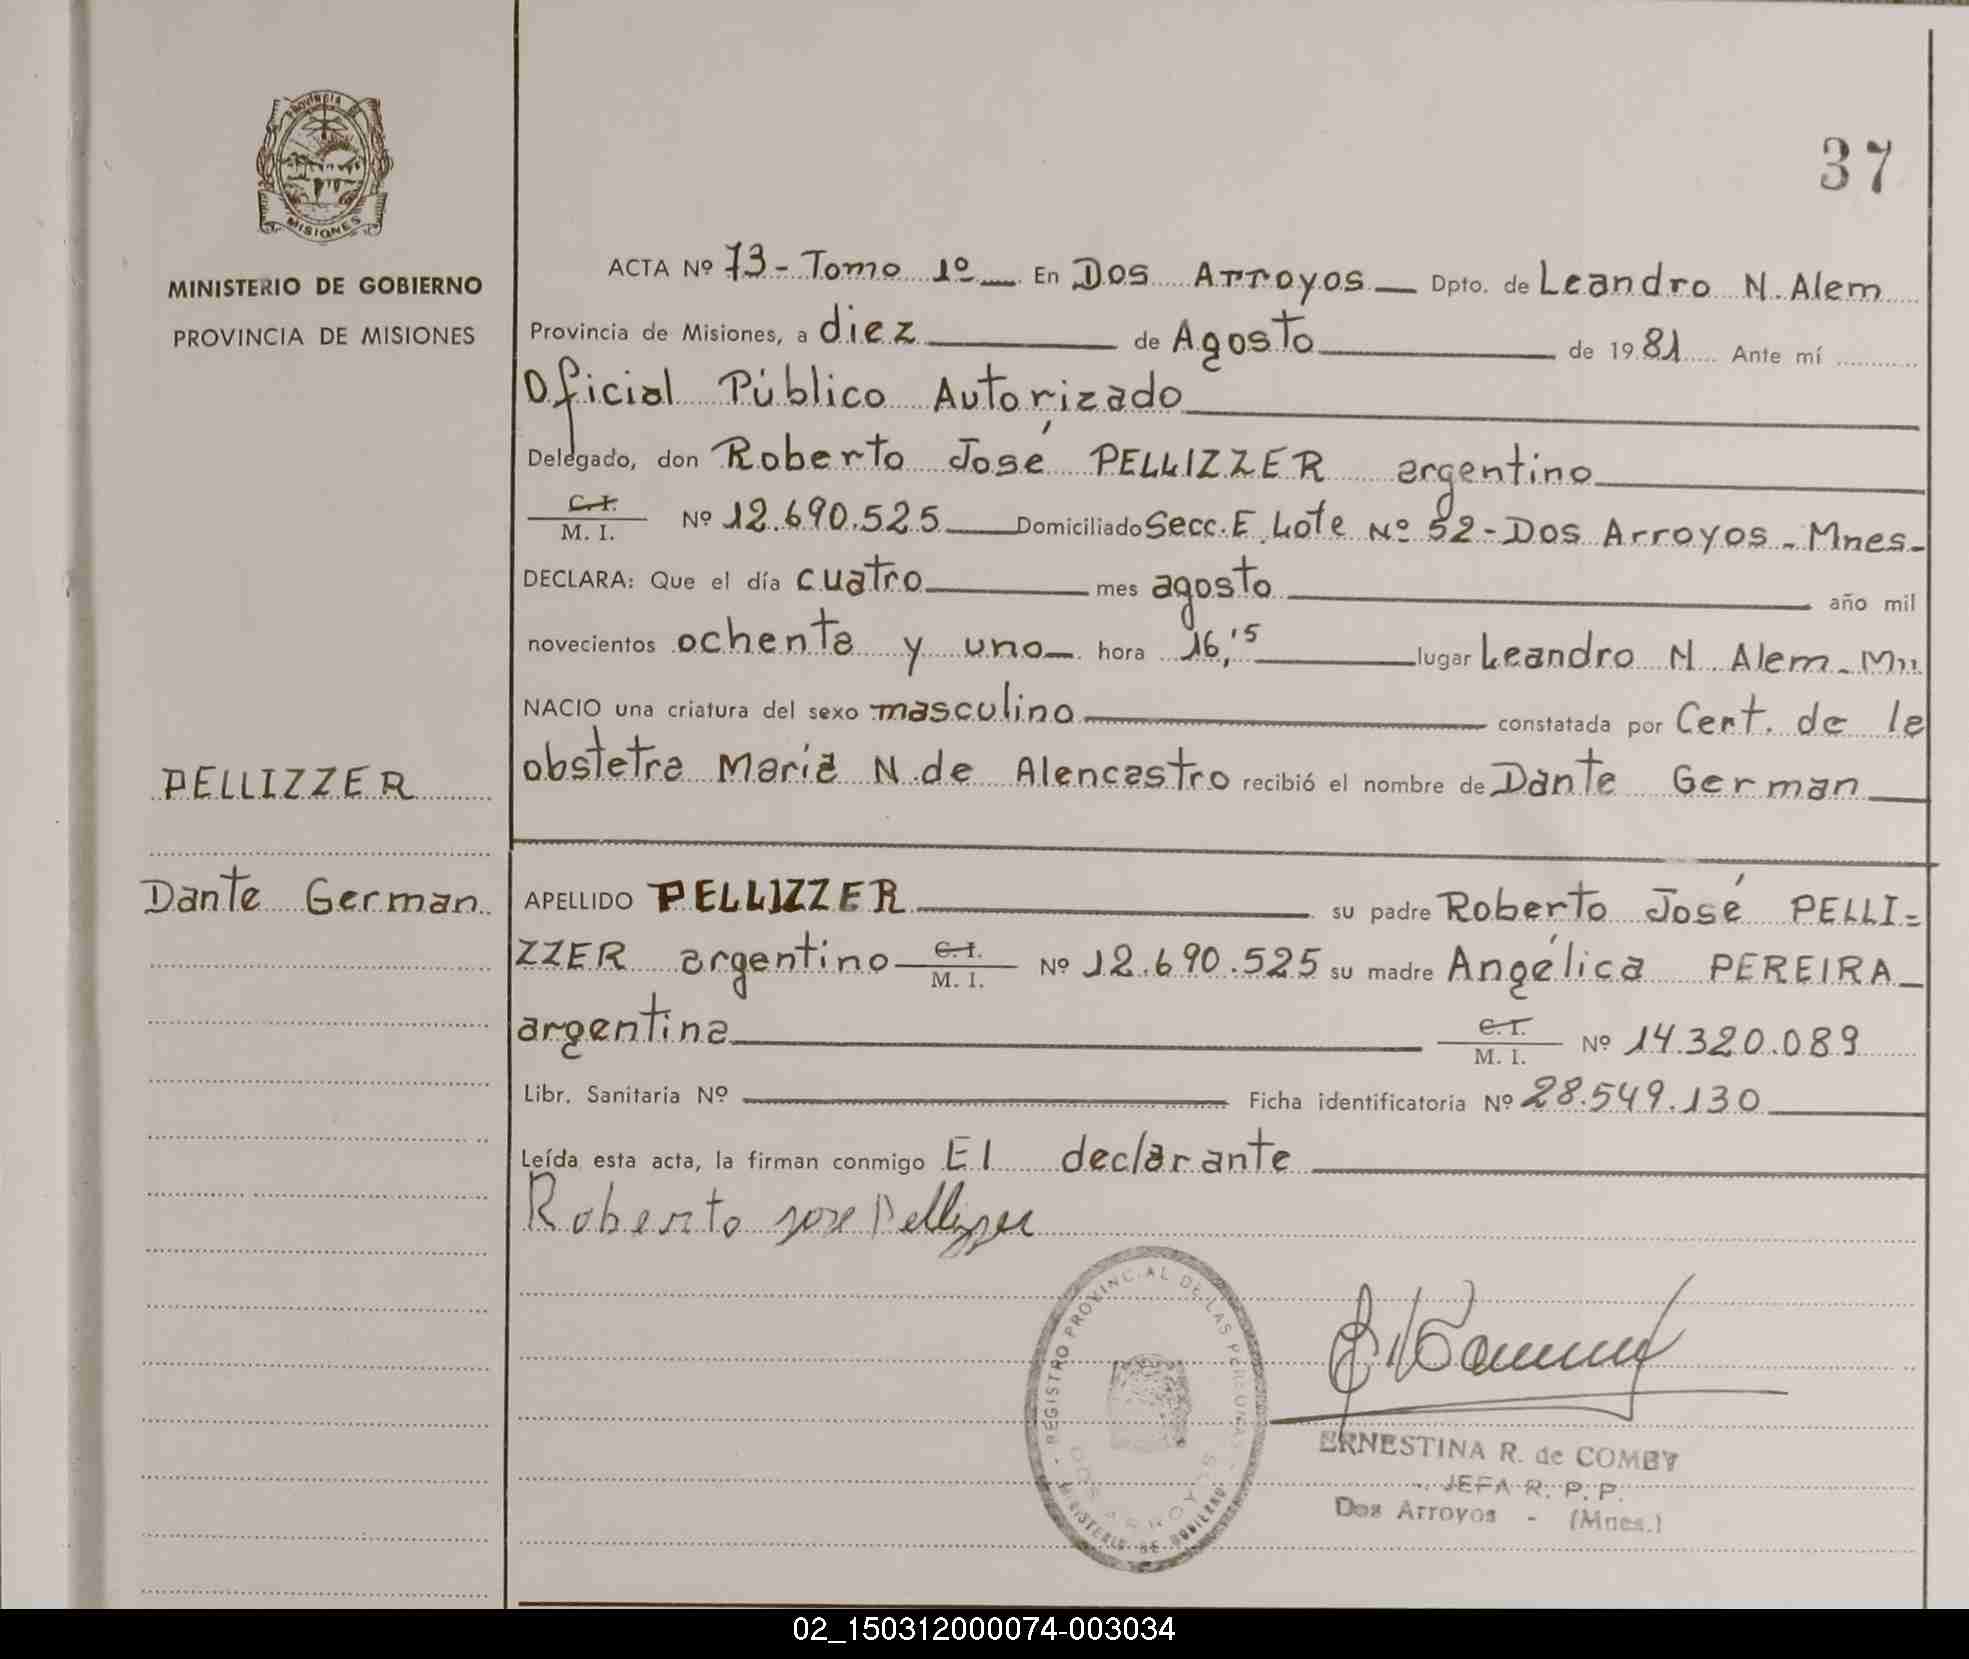 PROVINCIA DE
MISIONES
MINISTERIO DE GOBIERNO
PROVINCIA DE MISIONES
PELLIZZER
Dante German
37
ACTA Nº 73 - Tomo 1º En Dos Arroyos Dpto. de Leandro N. Alem
Provincia de Misiones, a diez de Agosto de 1981 Ante mí
Oficial Público Autorizado
Delegado, don Roberto José PELLIZZER argentino
C. I.
M. I. Nº 12.690.525 Domiciliado Secc. E Lote Nº 52 - Dos Arroyos - Mnes -
DECLARA: Que el día cuatro mes agosto año mil
novecientos ochenta y uno hora 16,15 lugar Leandro N. Alem - Mn
NACIO una criatura del sexo masculino constatada por Cert. de la
obstetra Maria N. de Alencastro recibió el nombre de Dante German
APELLIDO PELLIZZER su padre Roberto José PELLI=
ZZER argentino C. I. M. I. Nº 12.690.525 su madre Angélica PEREIRA
argentina C. I. M. I. Nº 14.320.089
Libr. Sanitaria Nº Ficha identificatoria Nº 28.549.130
Leída esta acta, la firman conmigo El declarante
Roberto Jose Pellizzer
REGISTRO PROVINCIAL DE LAS PERSONAS
DOS ARROYOS
MINISTERIO DE GOBIERNO
ERNESTINA R. de COMBY
JEFA R. P. P.
Dos Arroyos - (Mnes.)
02_150312000074-003034